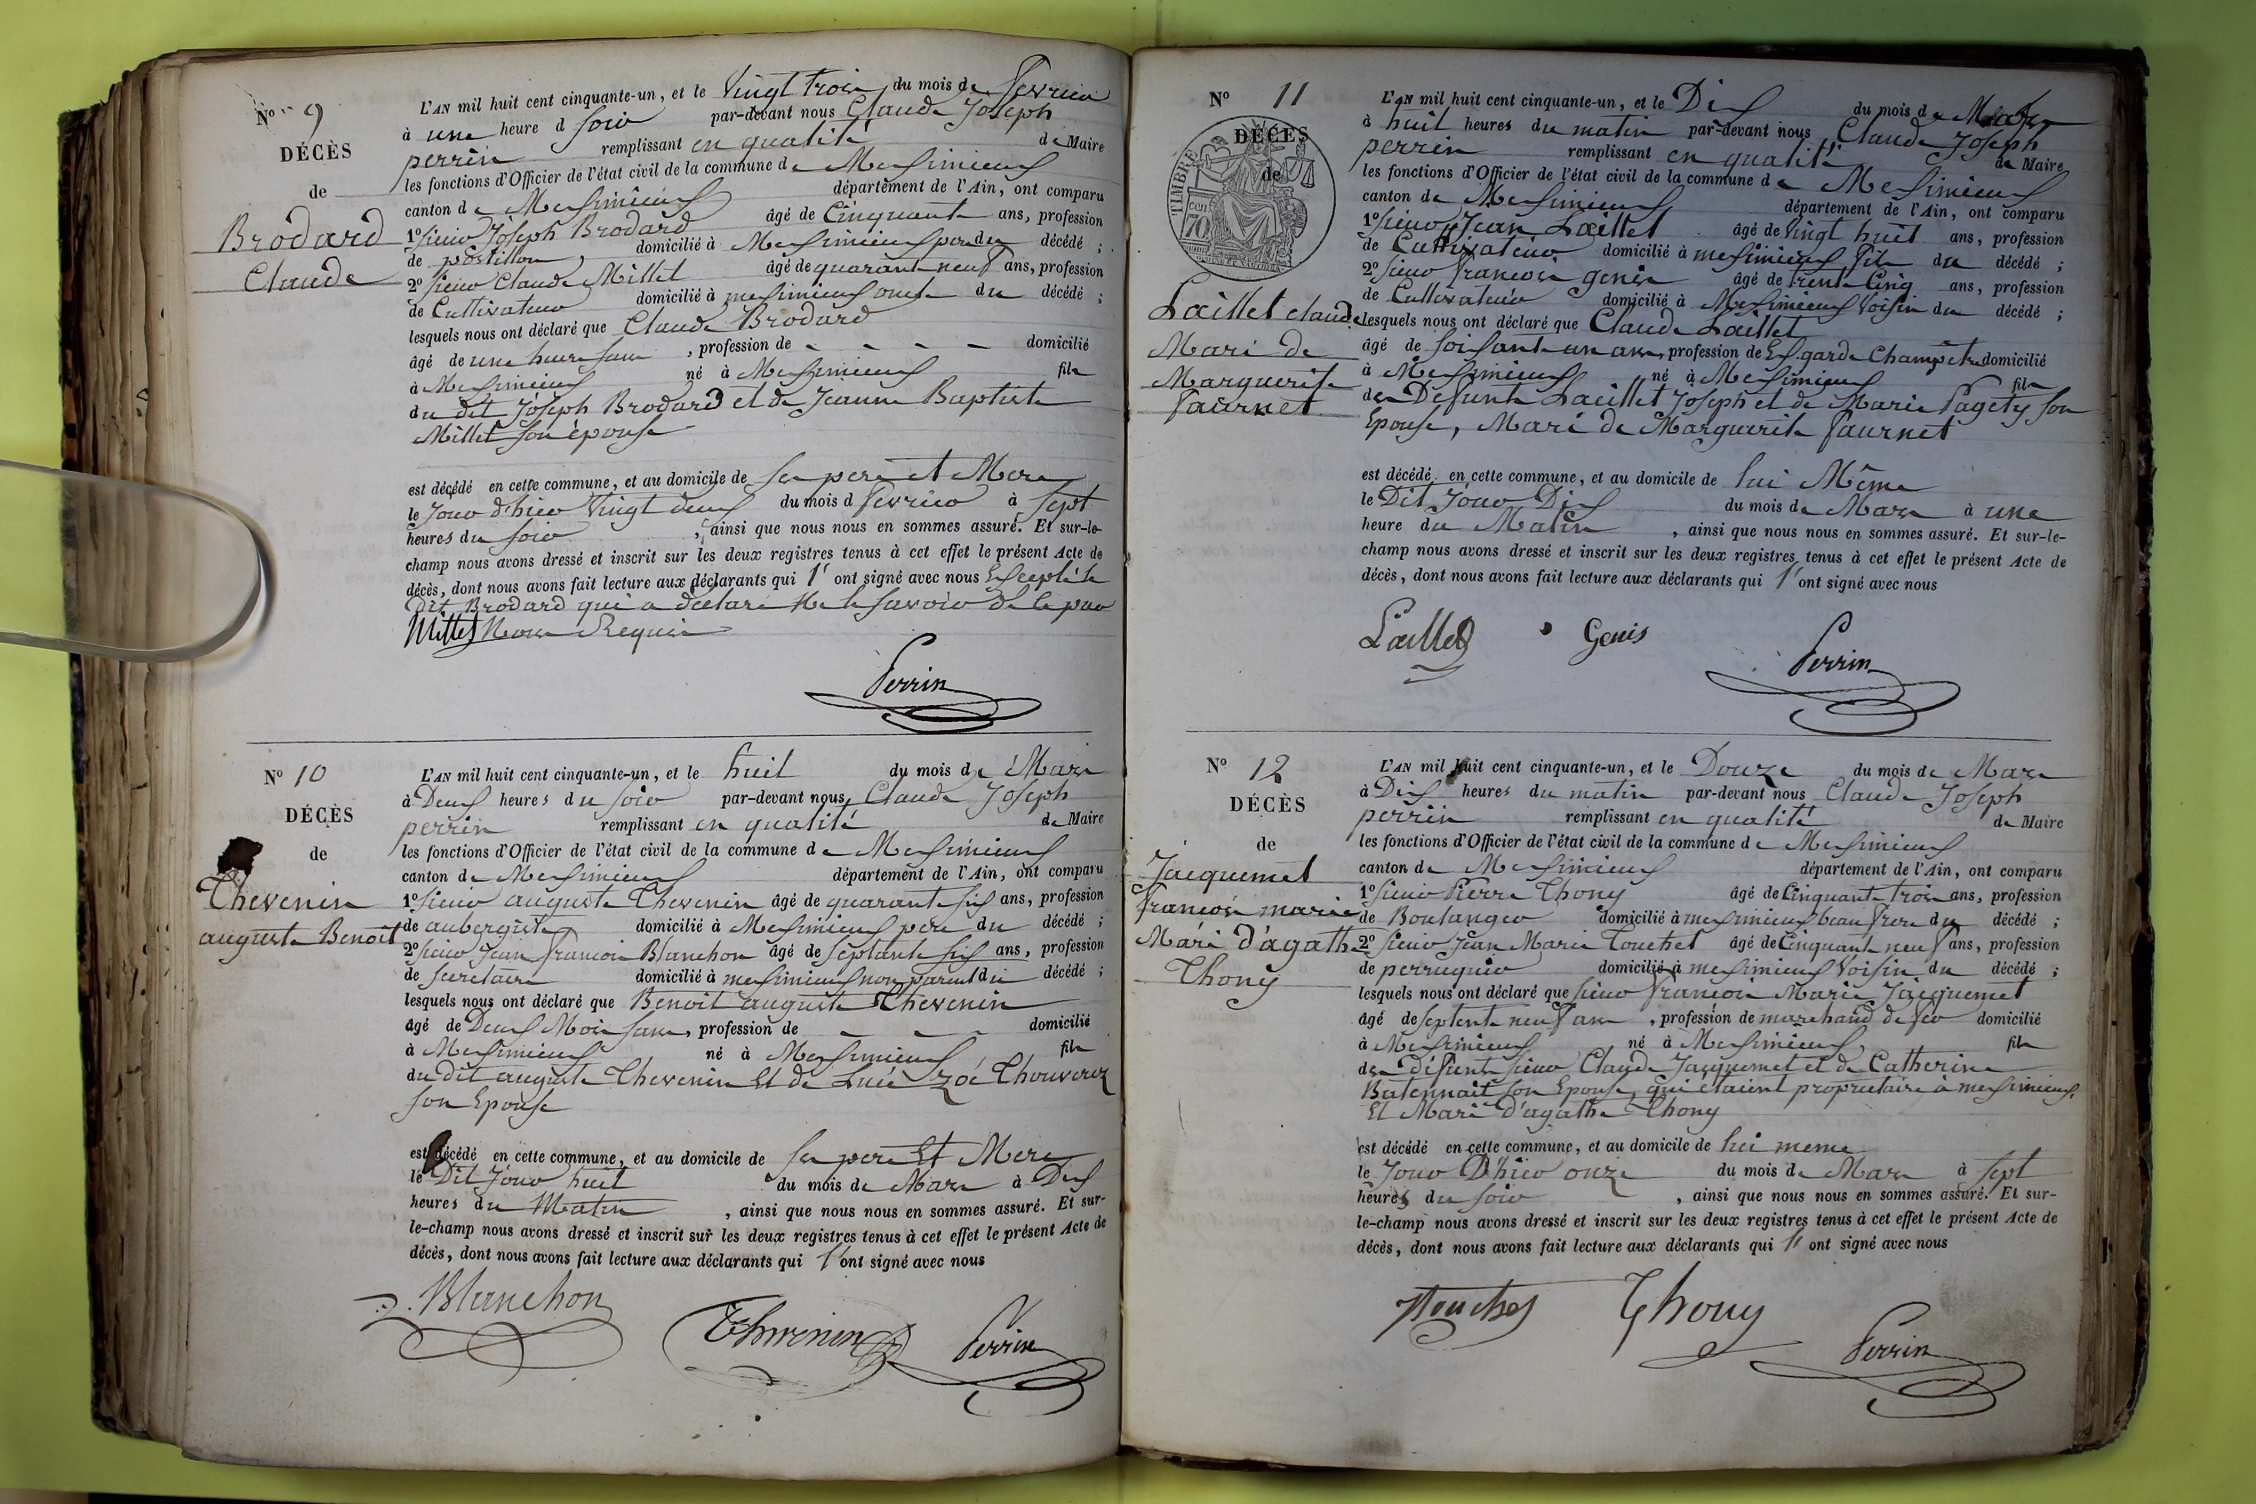 N° 9
DÉCÈS
de
Brodard
Claude
L'AN mil huit cent cinquante-un, et le Vingt trois du mois de Fevrier
à une heure d soir par-devant nous Claude Joseph
perrin remplissant en qualité de Maire
les fonctions d'Officier de l'état civil de la commune de Meximieux
canton de Meximieux département de l'Ain, ont comparu
1° sieur Joseph Brodard âgé de Cinquante ans, profession
de postillon, domicilié à Meximieux pere du décédé ;
2° sieur Claude Millet âgé de quarante neuf ans, profession
de Cultivateur domicilié à meximieux oncle du décédé ;
lesquels nous ont déclaré que Claude Brodard
âgé de une heure sans , profession de - - - - domicilié
à Meximieux né à Meximieux fils
du dit Joseph Brodard et de Jeanne Baptiste
Millet son épouse
est décédé en cette commune, et au domicile de ses pere et Mere
le Jour d'hier Vingt deux du mois d fevrier à Sept
heures du soir , ainsi que nous nous en sommes assuré. Et sur-le-
champ nous avons dressé et inscrit sur les deux registres tenus à cet effet le présent Acte de
décès, dont nous avons fait lecture aux déclarants qui l' ont signé avec nous Excepté le
dit Brodard qui a déclaré Ne le savoir de ce par
Millet Nous Requis
Perrin
N° 10
DÉCÈS
de
Thevenin
auguste Benoit
L'AN mil huit cent cinquante-un, et le huit du mois de Mars
à Deux heures du soir par-devant nous, Claude Joseph
perrin remplissant en qualité de Maire
les fonctions d'Officier de l'état civil de la commune de Meximieux
canton de Meximieux département de l'Ain, ont comparu
1° sieur auguste Thevenin âgé de quarante six ans, profession
de aubergiste domicilié à Meximieux pere du décédé ;
2° sieur Jean francois Blanchon âgé de septante six ans, profession
de Secretaire domicilié à meximieux non parent du décédé ;
lesquels nous ont déclaré que Benoit auguste Thevenin
âgé de Deux Mois sans, profession de - - - domicilié
à Meximieux né à Meximieux fils
du dit auguste Thevenin Et de Lucie Zoé Thouverez
son Epouse
est décédé en cette commune, et au domicile de ses pere Et Mere
le Dit Jour huit du mois de Mars à Dix
heures du Matin , ainsi que nous nous en sommes assuré. Et sur-
le-champ nous avons dressé et inscrit sur les deux registres tenus à cet effet le présent Acte de
décès, dont nous avons fait lecture aux déclarants qui l' ont signé avec nous
Blanchon Thevenin Perrin
N° 11
DÉCÈS
de
TIMBRE
70
Laillet claude
Mari de
Marguerite
faurnet
L'AN mil huit cent cinquante-un, et le Dix du mois de Mars
à huit heures du matin par-devant nous Claude Joseph
perrin remplissant en qualité de Maire
les fonctions d'Officier de l'état civil de la commune de Meximieux
canton de Meximieux département de l'Ain, ont comparu
1° sieur Jean Laillet âgé de Vingt huit ans, profession
de Cultivateur domicilié à meximieux fils du décédé ;
2° sieur francois genis âgé de trente Cinq ans, profession
de Cultivateur domicilié à Meximieux Voisin du décédé ;
lesquels nous ont déclaré que Claude Laillet
âgé de soixante un ans, profession de Ex garde Champêtre domicilié
à Meximieux né à Meximieux fils
des Defunts Laillet Joseph et de Marie Pagety son
Epouse, Mari de Marguerite faurnet
est décédé en cette commune, et au domicile de lui Même
le Dit Jour Dix du mois de Mars à une
heure du Matin , ainsi que nous nous en sommes assuré. Et sur-le-
champ nous avons dressé et inscrit sur les deux registres tenus à cet effet le présent Acte de
décès, dont nous avons fait lecture aux déclarants qui l' ont signé avec nous
Laillet Genis Perrin
N° 12
DÉCÈS
de
Jacquemet
francois marie
Mari d'agathe
Thony
L'AN mil huit cent cinquante-un, et le Douze du mois de Mars
à Dix heures du matin par-devant nous Claude Joseph
perrin remplissant en qualité de Maire
les fonctions d'Officier de l'état civil de la commune de Meximieux
canton de Meximieux département de l'Ain, ont comparu
1° sieur Pierre Thony âgé de Cinquante trois ans, profession
de Boulanger domicilié à meximieux beau frere du décédé ;
2° sieur Jean Marie Touchet âgé de Cinquante neuf ans, profession
de perruquier domicilié à meximieux Voisin du décédé ;
lesquels nous ont déclaré que sieur francois Marie Jacquemet
âgé de septente neuf ans , profession de marchand de fer domicilié
à Meximieux né à Meximieux fils
des défunts sieur Claude Jacquemet et de Catherine
Batennait son Epouse, qui étaient propriétaire à meximieux.
Et Mari d'agathe Thony
est décédé en cette commune, et au domicile de lui meme
le Jour D'hier onze du mois de Mars à sept
heures du soir , ainsi que nous nous en sommes assuré. Et sur-
le-champ nous avons dressé et inscrit sur les deux registres tenus à cet effet le présent Acte de
décès, dont nous avons fait lecture aux déclarants qui l' ont signé avec nous
Touchet Thony Perrin